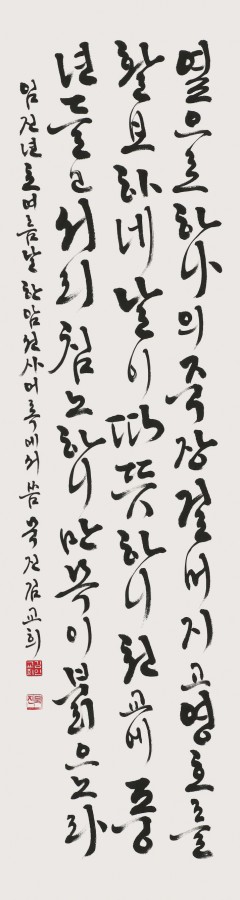 열으로 하나의 죽장 걸머지고 영호를
활보하네 날이 따뜻하니 원교에 풍
년들고 서리 침노하니 만목이 붉으노라
임진년 초여름날 한암선사 어록에서 씀 김교희